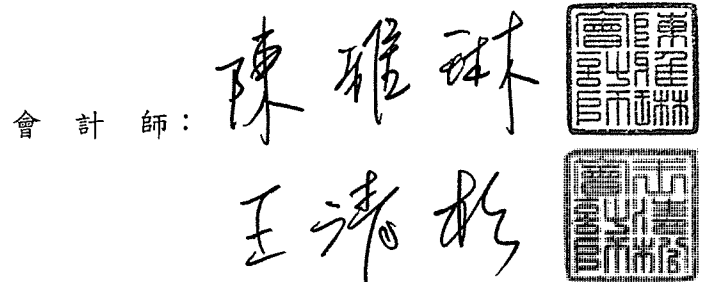 會計師：
陳雅琳
陳雅琳會計師
王清松
王清松會計師